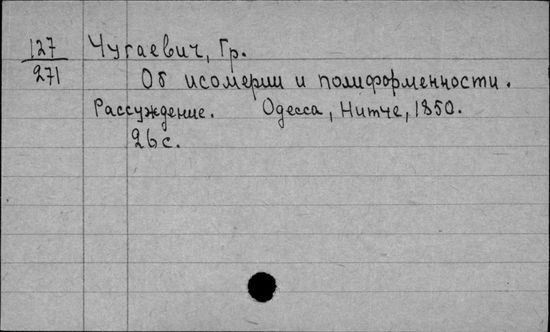 127 Чугаевич, Гр.
271 Об исомерии и полиформенности.
Рассуждение. Одесса, Нитче, 1850.
26 с.